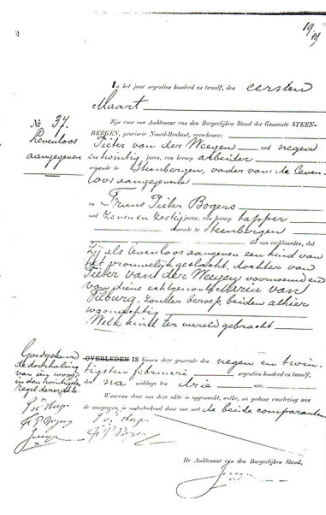 19
19
In het jaar negentien honderd en twaalf, den eersten
Maart
zijn voor ons Ambtenaar van den Burgerlijken Stand der Gemeente STEEN-
BERGEN, provincie Noord-Brabant, verschenen:
No. 37.
Levenloos
aangegeven
Pieter van der Weegen oud negen
en twintig jaren, van beroep arbeider
wonende te Steenbergen, vader van de leven-
loos aangegevene
en Frans Pieter Bogers
oud zeven en zestig jaren, van beroep tapper
wonende te Steenbergen
die ons verklaarden, dat
zij als levenloos aangeven een kind van
het vrouwelijk geslacht, dochter van
Pieter van der Weegen voornoemd en
van diens echtgenoote Maria van
Tilburg, zonder beroep, beiden alhier
woonachtig
Welk kind ter wereld gebracht
OVERLEDEN IS binnen deze gemeente den negen en twin
tigsten februari negentien honderd en twaalf,
des na middags ten drie ure.
Goedgekeurd
de doorhaling
van een woord
in den twintigsten
regel dezer akte
Waarvan door ons akte is opgemaakt, welke, na gedane voorlezing aan
de aangevers, is onderteekend door ons en de beide comparanten
De Ambtenaar van den Burgerlijken Stand,